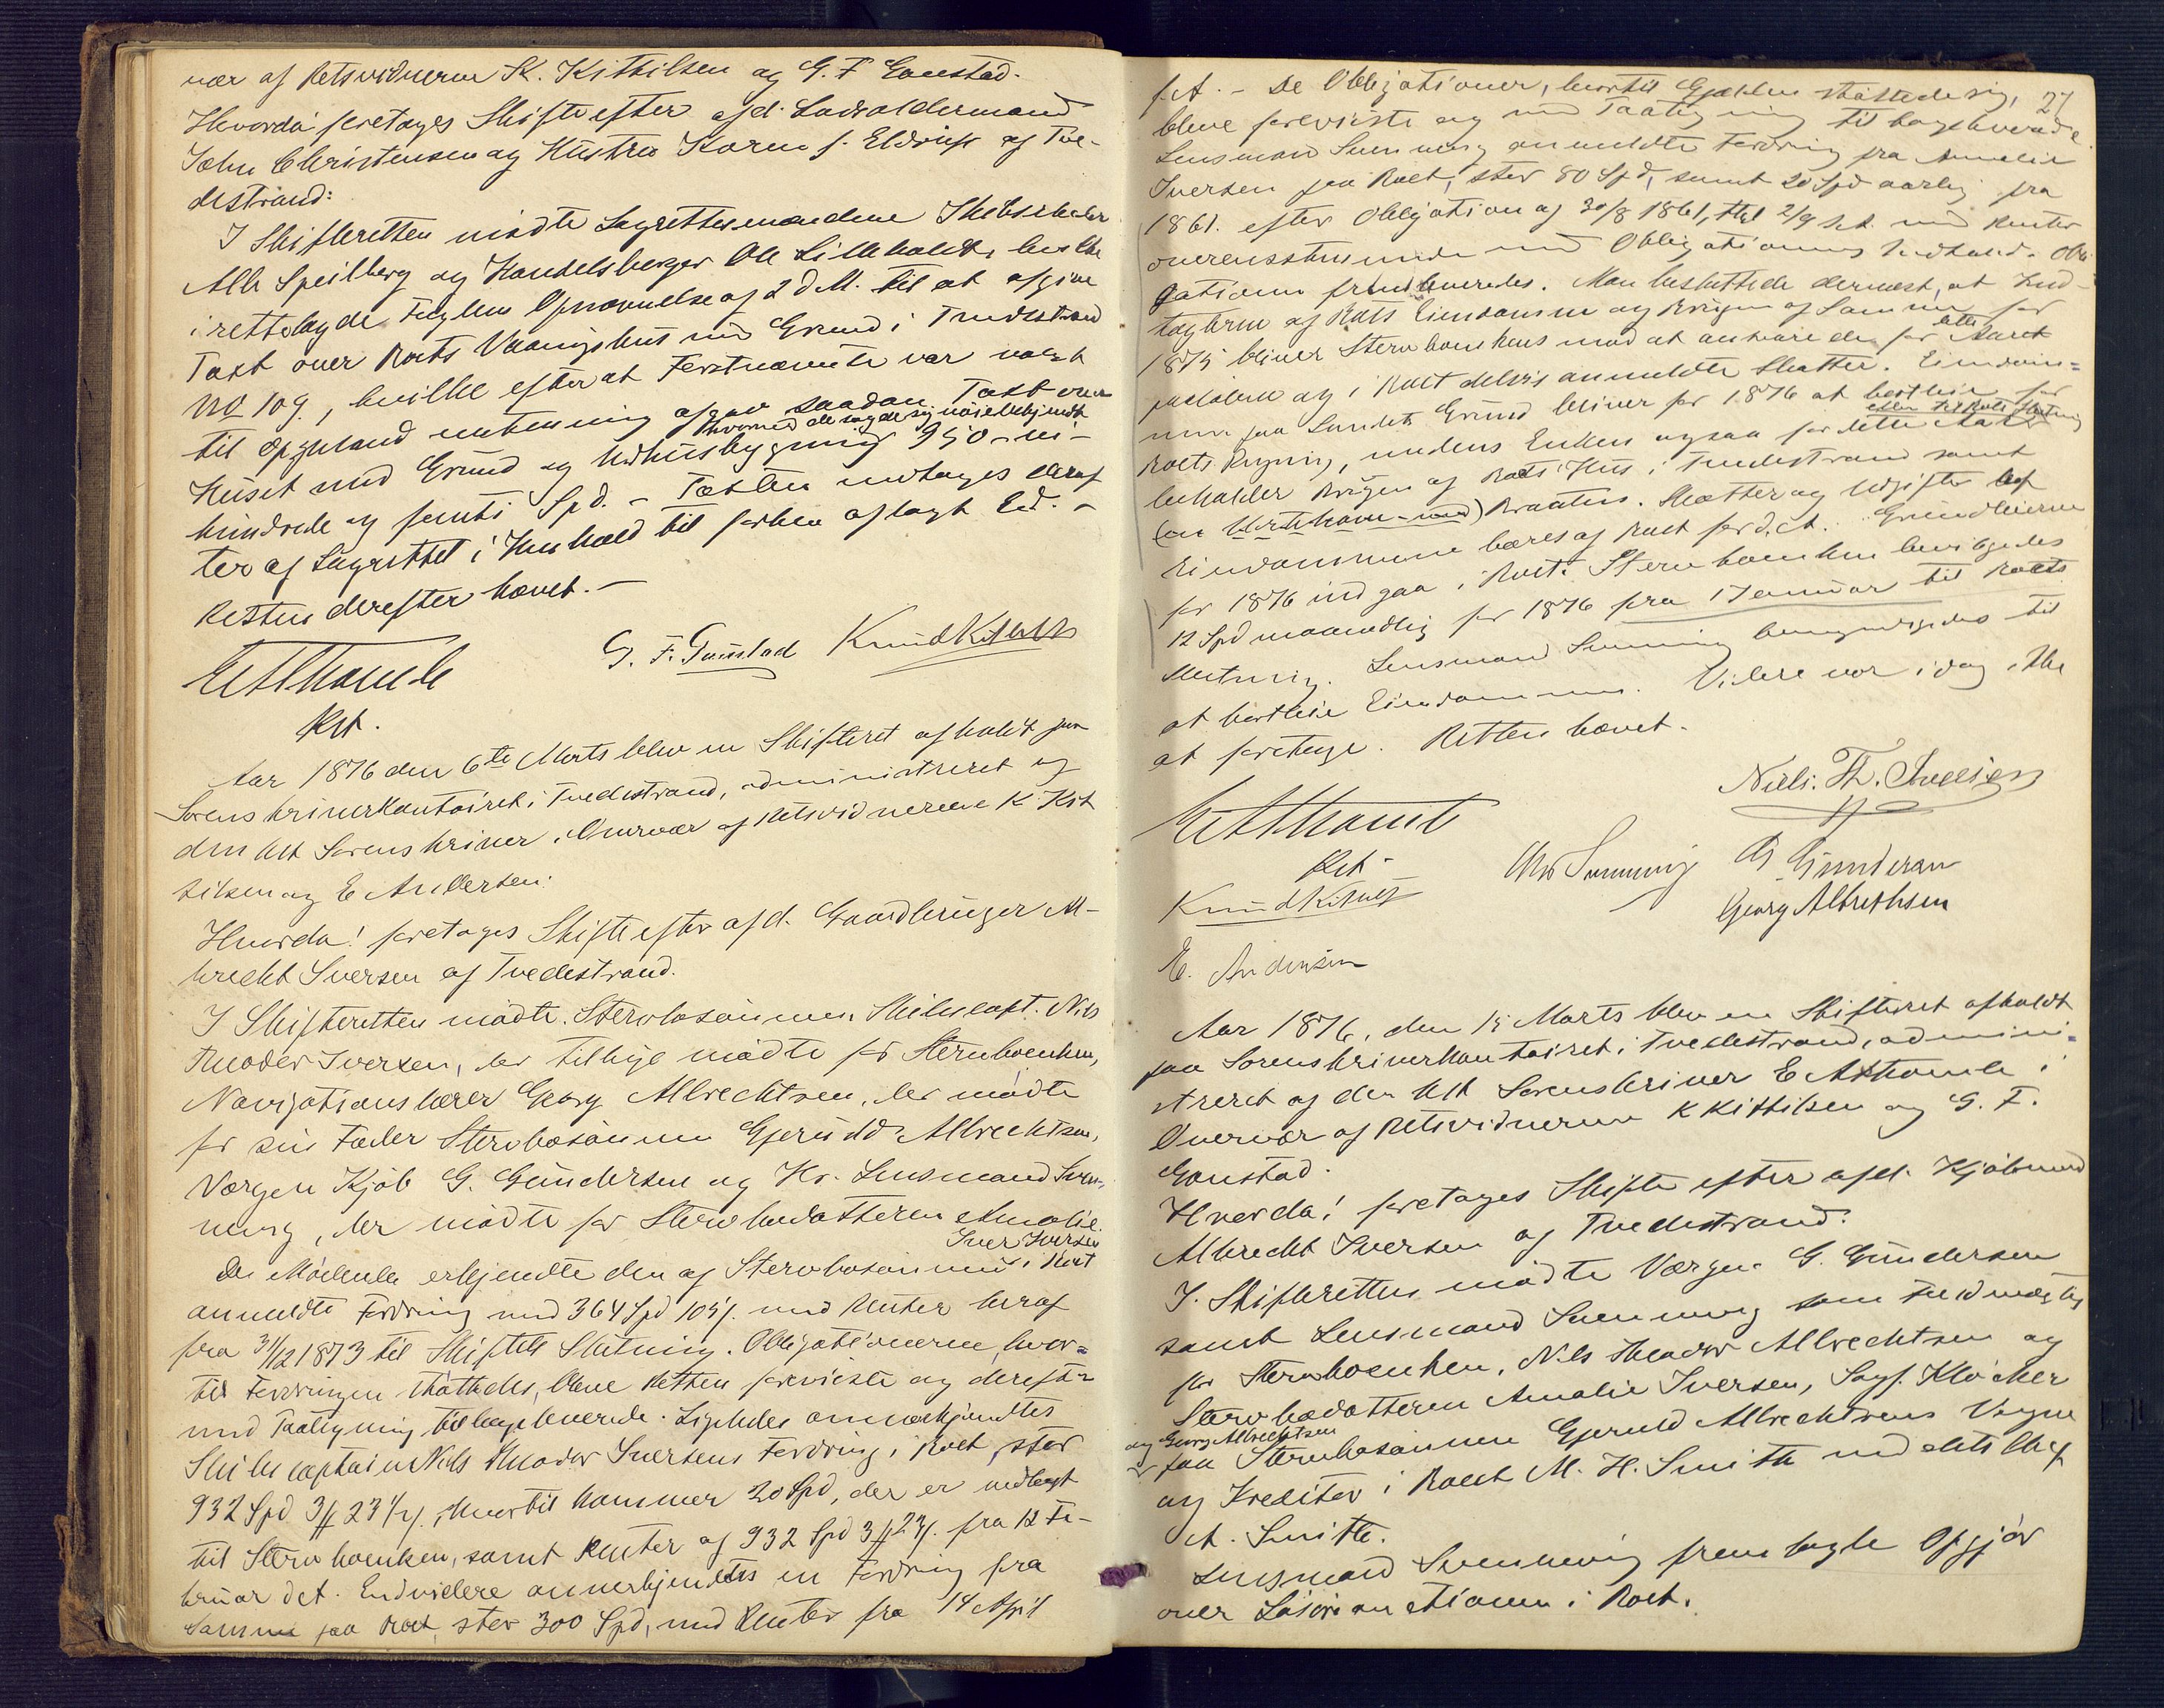 vær af Retsvidnerne K. Kittilsen og G. F. Gonstad.
Hvorda foretages Skifte efter afd. Lodsoldermand
John Christensen og Hustru Karen f. Eldrup af Tve-
destrand:
I Skifteretten mødte Lagrettesmændene Skibsreder
Alb Speilberg og Handelsborger Ole Lilleholdt, hvilke
irettelagde Fogdens Opnævnelse af 2 d. M. til at afgive
Taxt over Boets Vaaningshus med Grund i Tvedestrand
No 109, hvilke efterat Førstnævnte var valgt
til Opmand afgav saadan Taxt over
hvormed de sagde sig nøie bekjendt
Huset med Grund og Udhusbygning 950 – ni-
hundrede og femti Spd. – Taxten vedtoges deraf
ter af Lagrettet i Henhold til forhen aflagt Ed. –
Retten derefter hævet. –
G. F. Gonstad Knud Kittilsen
Kst.
Aar 1876 den 6te Marts blev en Skifteret afholdt paa
Sorenskriverkontoiret i Tvedestrand, administreret af
den kst Sorenskriver i Overvær af Retsvidnerne K Kit
tilsen og E Andersen:
Hvorda! foretages Skifte efter afd. Gaardbruger Al-
brecht Iversen af Tvedestrand.
I Skifteretten mødte Stervbosønnen Skibscapt. Nils
Theodor Iversen, der tillige mødte for Stervboenken,
Navigationslærer Georg Albrechtsen, der mødte
for sin Fader Stervbosønnen Gjeruld Albrechtsen,
Værgen Kjøb G. Gundersen og Hr. Lensmand Sven-
ning, der mødte for Stervbodatteren Amalie
Iver Iversen
De Mødende erkjendte den af Stervbosønnen i Boet
anmeldte Fordring med 364 Spd 105 ß. med Renter heraf
fra 31/12 1873 til Skiftets Slutning. Obligationerne, hvor-
til Fordringen støttedes, bleve Retten foreviste og derefter
med Paategning tilbageleverede. Ligeledes anerkjendtes
Skibscaptain Nils Theodor Iversens Fordring i Boet, stor
932 Spd 3 # 23 ß., hvortil kommer 20 Spd, der er udlagt
til Stervboenken, samt Renter af 932 Spd 3 # 23 ß. fra 12 Fe-
bruar d. A. Endvidere anerkjendtes en Fordring fra
Samme paa Boet, stor 300 Spd, med Renter fra 14 April
27
f. A. – De Obligationer, hvortil Gjælden støttede sig,
bleve foreviste og med Paategning tilbageleverede.
Lensmand Svenning anmeldte Fordring fra Amalie
Iversen paa Boet, stor 80 Spd, samt 20 Spd aarlig fra
1861. efter Obligation af 30/8 1861, tgl 2/9 s. A. med Renter
overensstemmende med Obligationens Indhold. Obli
gationen fremleveredes. Man besluttede dernæst, at Ind-
tægterne af Boets Eiendomme og Brugen af Samme for
1875 bliver Stervboenkens mod at anvare de for dette Aaret
paaløbne og i Boet delvis anmeldte Skatter. Eiendom-
men paa Landets Grund bliver for 1876 at bortleie for
eller til Boets Slutning
Boets Regning, medens Enken ogsaa for dette Aar
beholder Brugen af Boets Hus i Tvedestrand samt
(en Urtehave med) Braaten. Skatter og Udgifter af
Eiendommene bæres af Boet for d. A. Grundleierne
for 1876 indgaa i Boet. Stervboenken bevilgedes
12 Spd maanedlig for 1876 fra 1 Januar til Boets
Slutning. Lensmand Svenning bemyndigedes til
at bortleie Eiendommen. Videre var idag ikke
at foretage. Retten hævet.
Niels. Th. Iversen
Kst.
Chr Svenning G Gundersen
Knud Kittilsen Georg Albrethsen
E. Andersen
Aar 1876, den 15 Marts blev en Skifteret afholdt
paa Sorenskriverkontoiret i Tvedestrand, admini-
streret af den kst Sorenskriver i
Overvær af Retsvidnerne K Kittilsen og G. F.
Gonstad.
Hvorda! foretages Skifte efter afd. Kjøbmand
Albrecht Iversen af Tvedestrand:
I Skifteretten mødte Værgen G. Gundersen
samt Lensmand Svenning som Fuldmægtig
for Stervboenken, Nils Theodor Albrechtsen og
Stervbodatteren Amalie Iversen, Sagf. Kløcker
og Georg Albrechtsen
for Stervbosønnen Gjeruld Albrechtsens Vegne
og Kreditor i Boet M. H. Smith ved
A. Smith.
Lensmand Svenning fremlagde Opgjør
over i Boet.